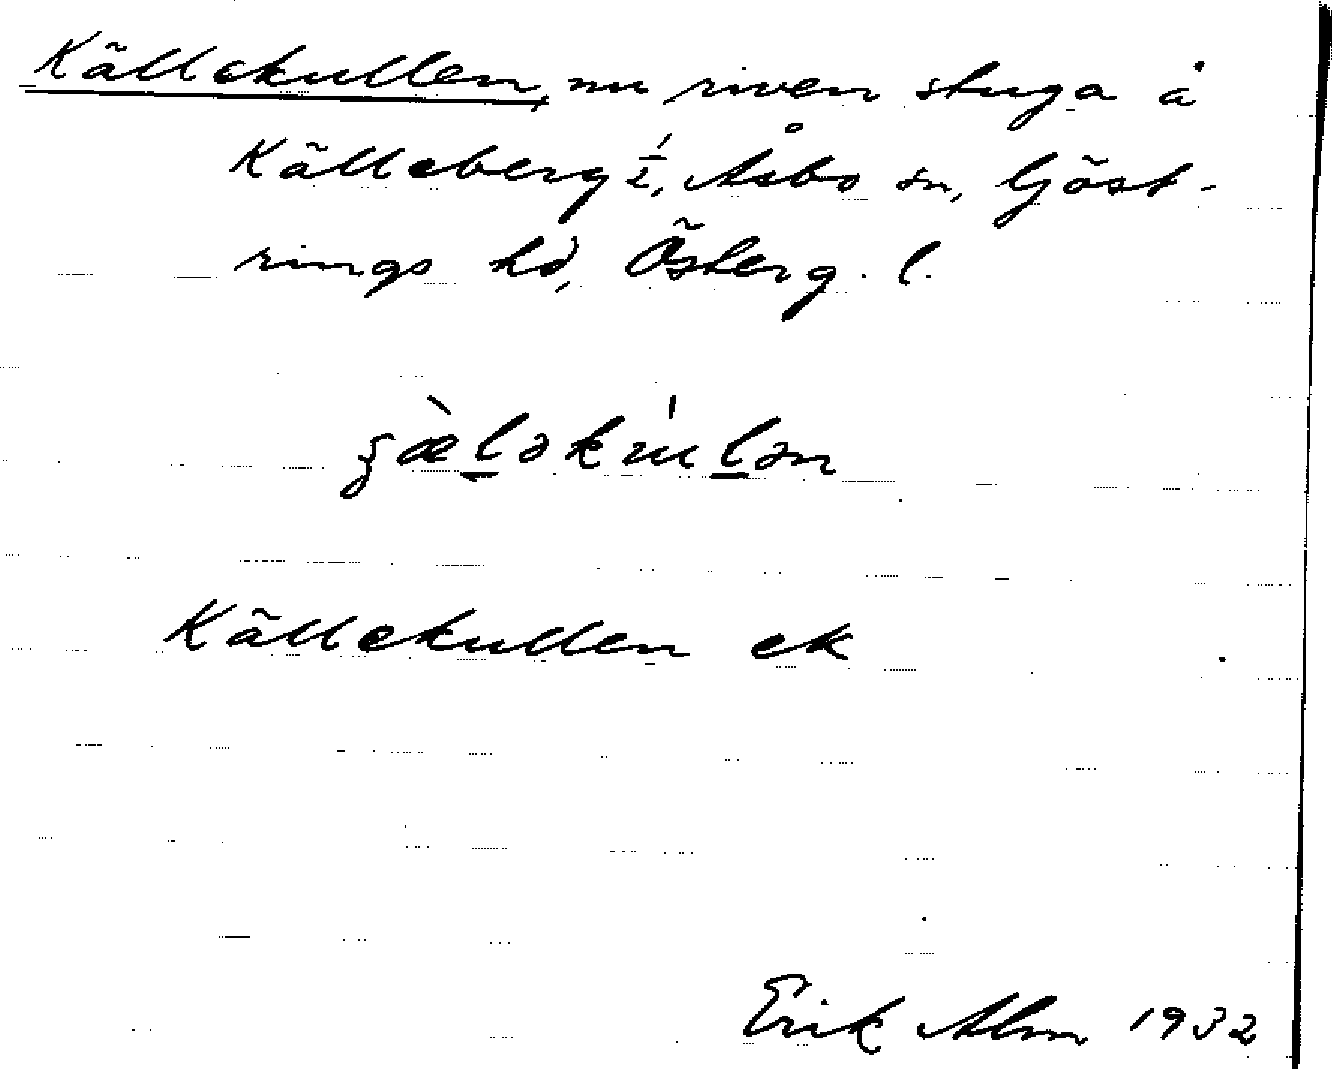 Källekullen, nu riven stuga å
Källeberg 1/2, Åsbo sn, Göst-
rings hd, Österg. l.
Källekullen ek
Erik Alm 1932